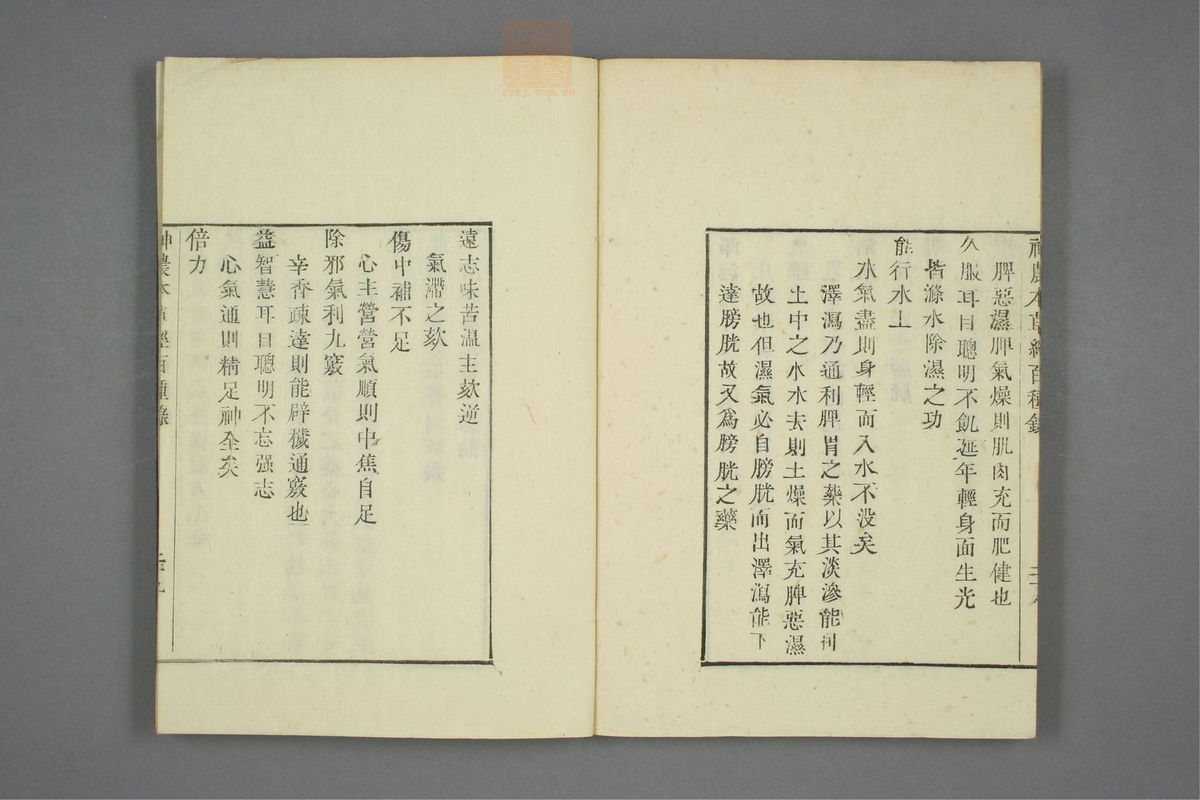 神農本草經百種錄
脾惡濕脾氣燥則肌肉充而肥健也
久服耳目聰明不飢延年輕身面生光
皆滌水除濕之功
能行水上
水氣盡則身輕而入水不没矣
澤瀉乃通利脾胃之藥以其淡滲能利
土中之水水去則土燥而氣充脾惡濕
故也但濕氣必自膀胱而出澤瀉能下
達膀胱故又爲膀胱之藥
遠志味苦溫主欬逆
氣滯之欬
傷中補不足
心主營營氣順則中焦自足
除邪氣利九竅
辛香疎達則能辟穢通竅也
益智慧耳目聰明不忘强志
心氣通則精足神全矣
倍力
神農本草經百種錄
zysj.com.cn